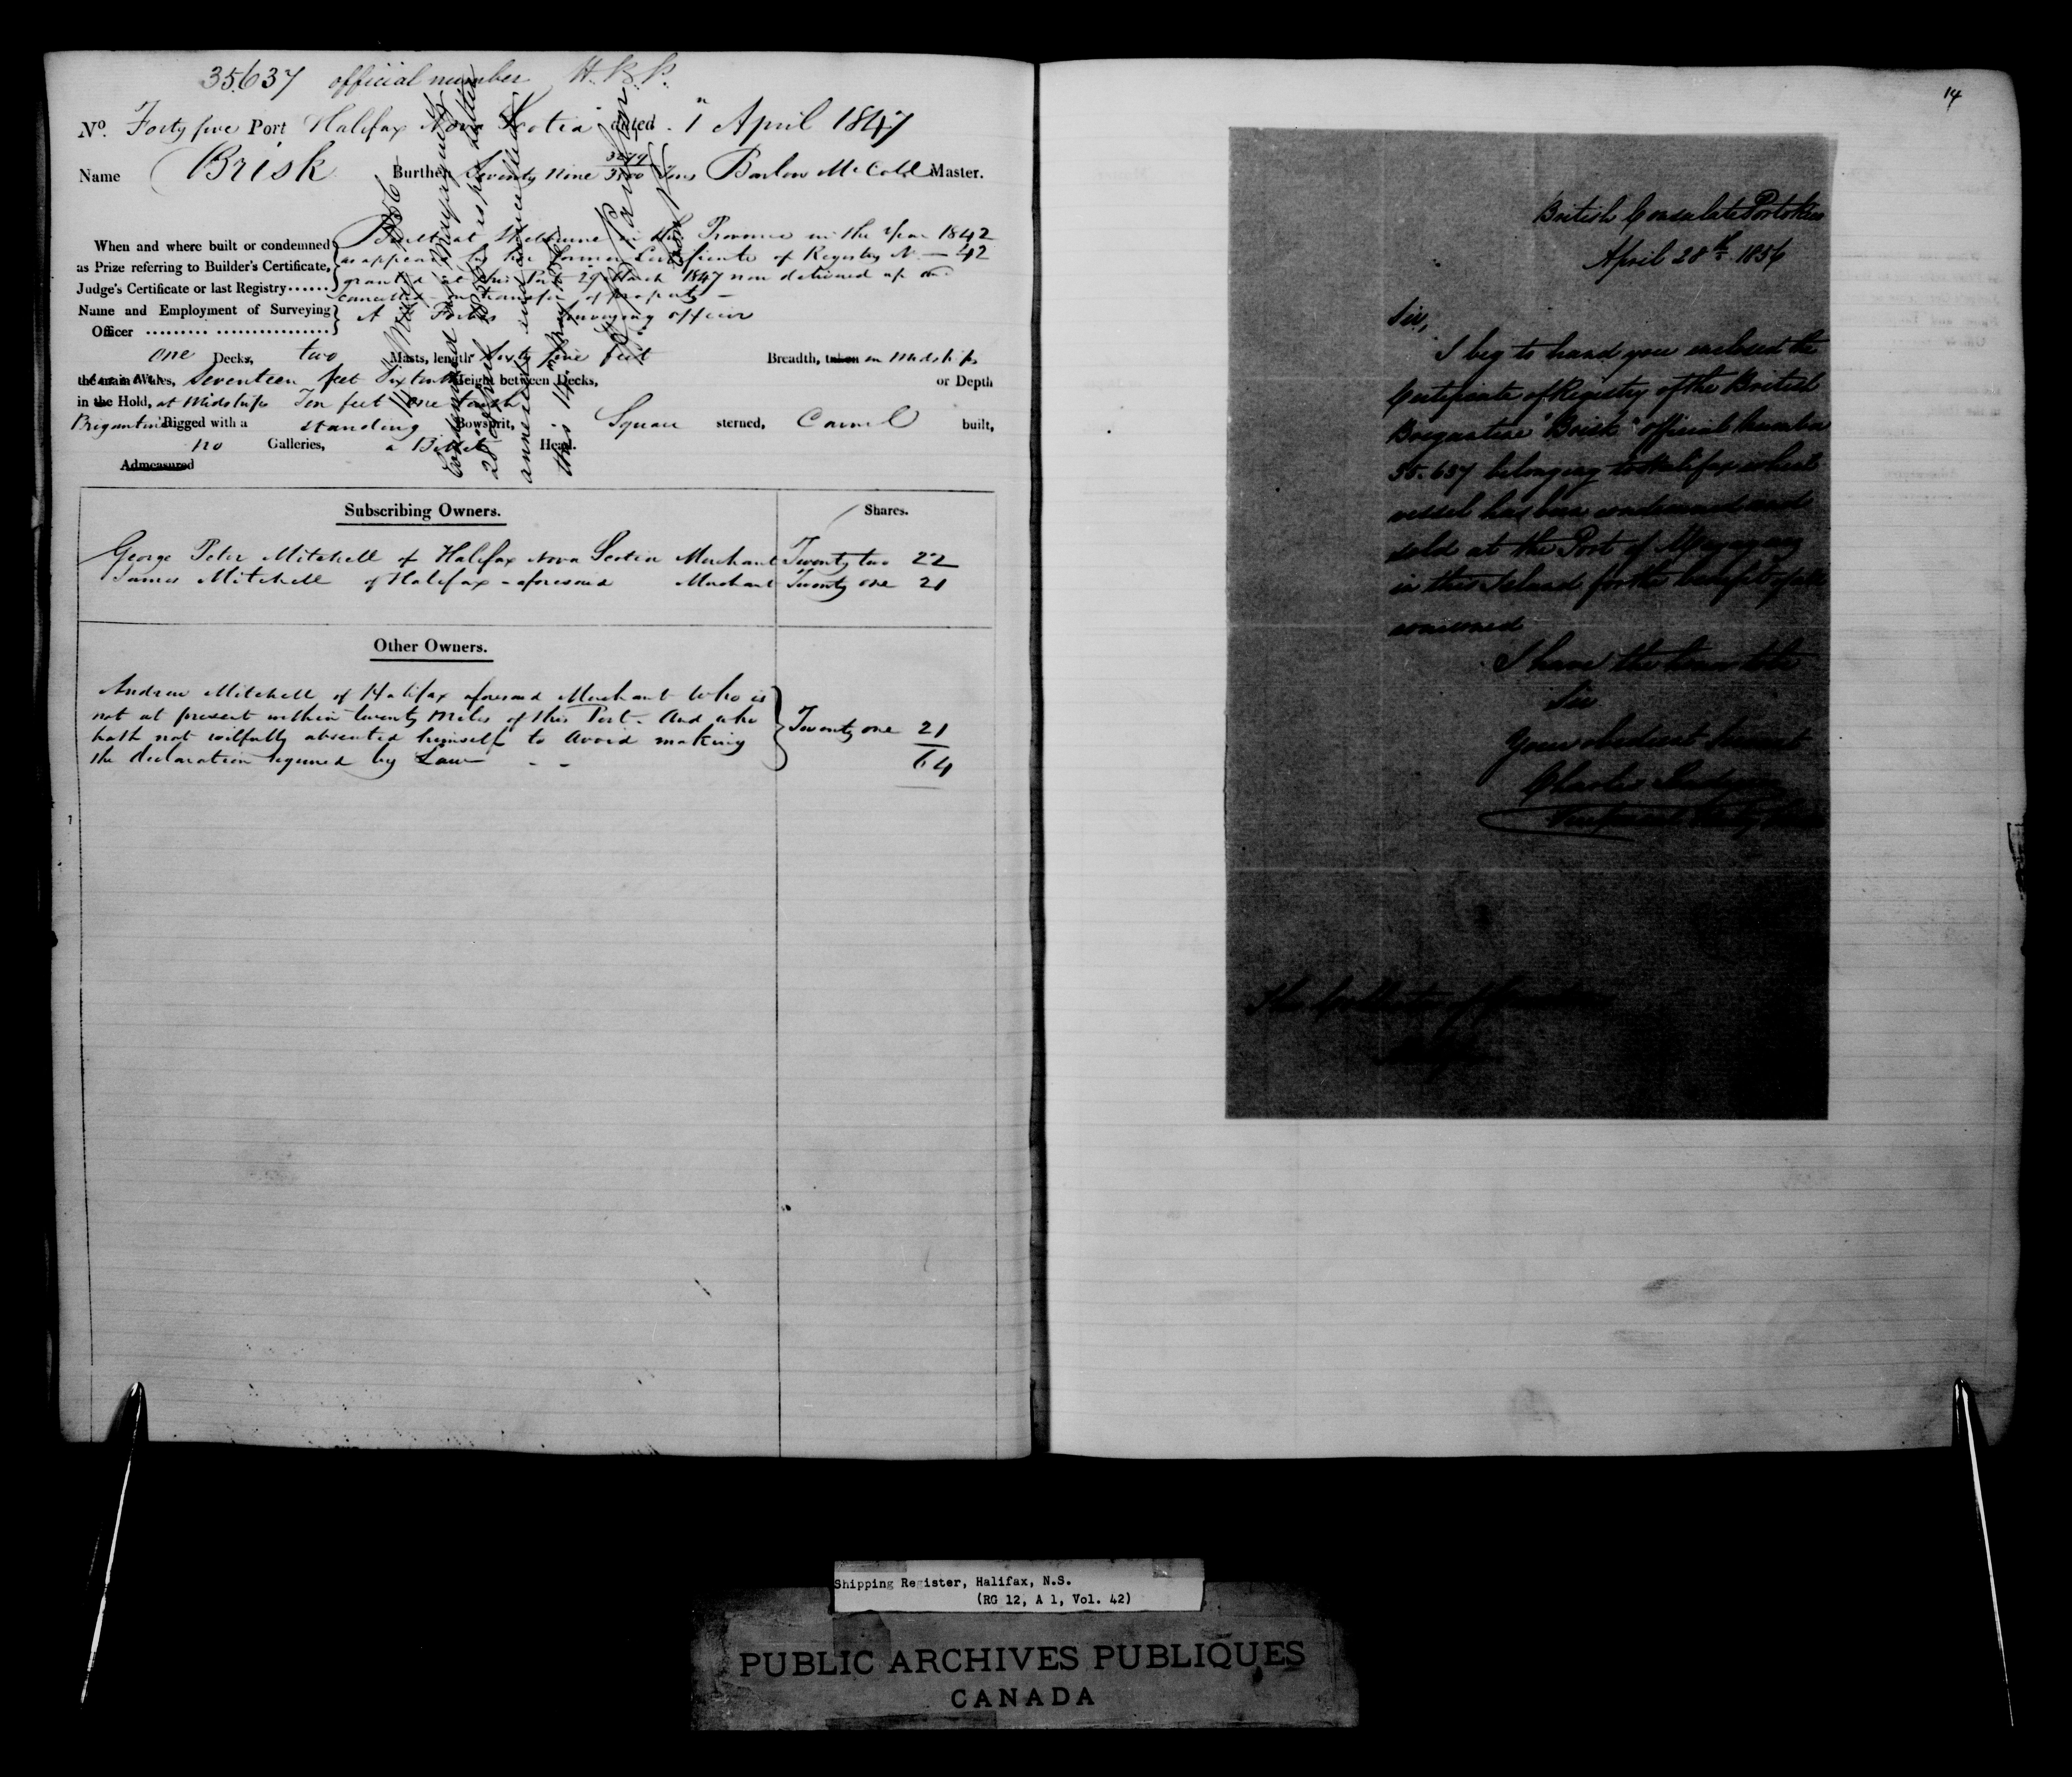 35637 official number H.K.P.
No. Forty five Port Halifax Nova Scotia dated 1" April 1847
Name Brisk Burthen Seventy Nine Tons Barlow McColl Master.
When and where built or condemned
as Prize referring to Builder's Certificate,
Judge's Certificate or last Registry......
Built at Shelburne in this Province in the Year 1842
as appears by her former Certificate of Registry No. 42
granted at this Port 29 March 1847 now delivered up and
cancelled on transfer of property
Name and Employment of Surveying
Officer
A Forbes Surveying officer
one Decks, two Masts, length Sixty five feet Breadth, taken in Midships
the main Wales, Seventeen feet Six tenths Height between Decks, or Depth
in the Hold, at Midships Ten feet one tenth
Brigantine Rigged with a standing Bowsprit, Square sterned, Carvel built,
no Galleries, a Billet Head.
Admeasured
14 May 1856
Condemned at Mayaguez
28 April 1856 as per letter
annexed and cancelled
this 14th May 1856
Subscribing Owners.
Shares.
George Peter Mitchell of Halifax Nova Scotia Merchant Twenty two 22
James Mitchell of Halifax aforesaid Merchant Twenty one 21
Other Owners.
Andrew Mitchell of Halifax aforesaid Merchant Who is
not at present within twenty Miles of this Port. And who
hath not wilfully absented himself to avoid making
the declaration required by Law
Twenty one 21
64
14
British Consulate Porto Rico
April 28th 1856
Sir,
I beg to hand you enclosed the
Certificate of Registry of the British
Brigantine "Brisk" official Number
35.637 belonging to Halifax which
vessel has been condemned and
sold at the Port of Mayaguez
in this Island for the benefit of all
concerned
I have the honor to be
Sir
Your obedient Servant
Charles
The Collector of Customs
Halifax
Shipping Register, Halifax, N.S.
(RG 12, A 1, Vol. 42)
PUBLIC ARCHIVES PUBLIQUES
CANADA